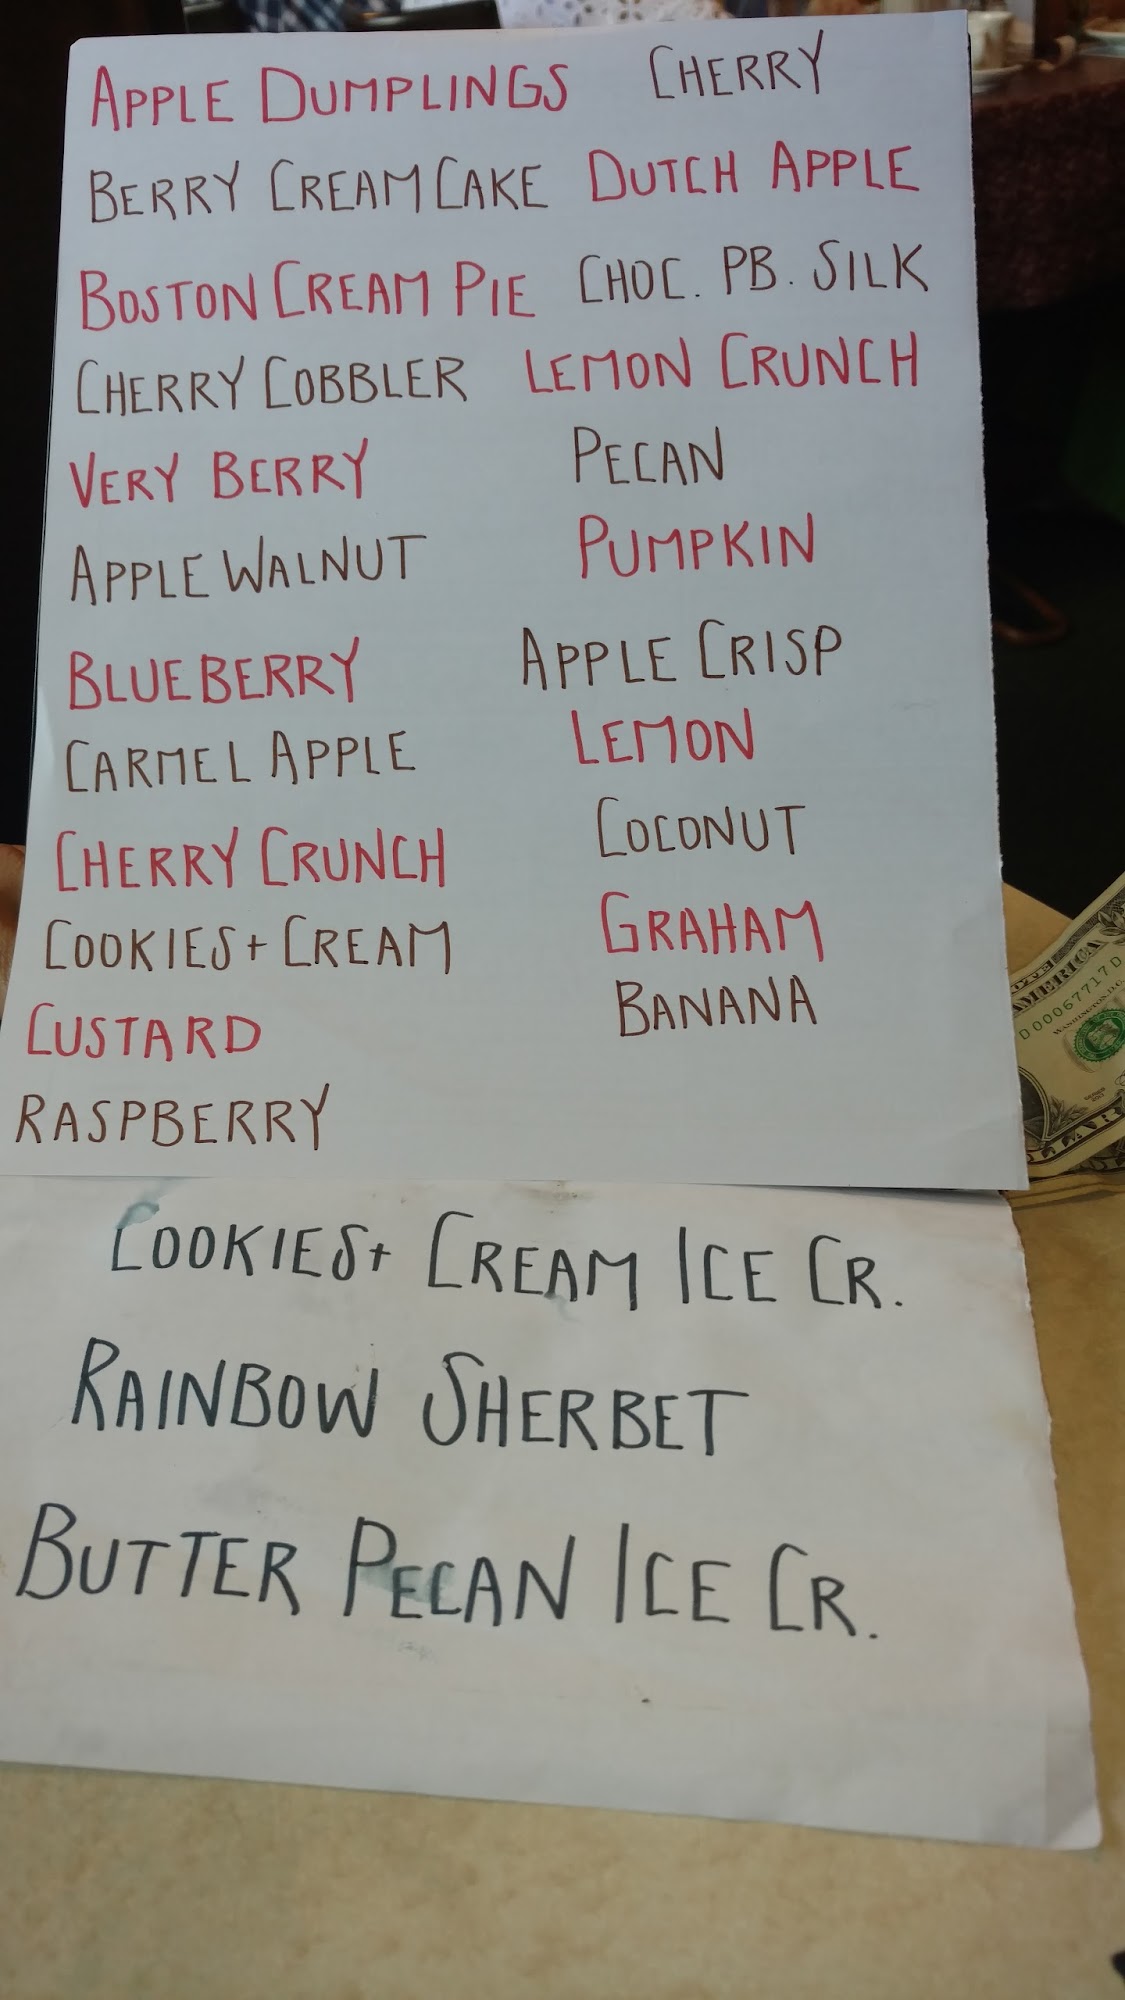 APPLE DUMPLINGS
BERRY CREAM CAKE
BOSTON CREAM PIE
CHERRY COBBLER
VERY BERRY
APPLE WALNUT
BLUEBERRY
CARMEL APPLE
CHERRY CRUNCH
COOKIES + CREAM
CUSTARD
RASPBERRY
CHERRY
DUTCH APPLE
CHOC. PB. SILK
LEMON CRUNCH
PECAN
PUMPKIN
APPLE CRISP
LEMON
COCONUT
GRAHAM
BANANA
COOKIES + CREAM ICE CR.
RAINBOW SHERBET
BUTTER PECAN ICE CR.
AMERICA
WASHINGTON, D.C.
D00067717D